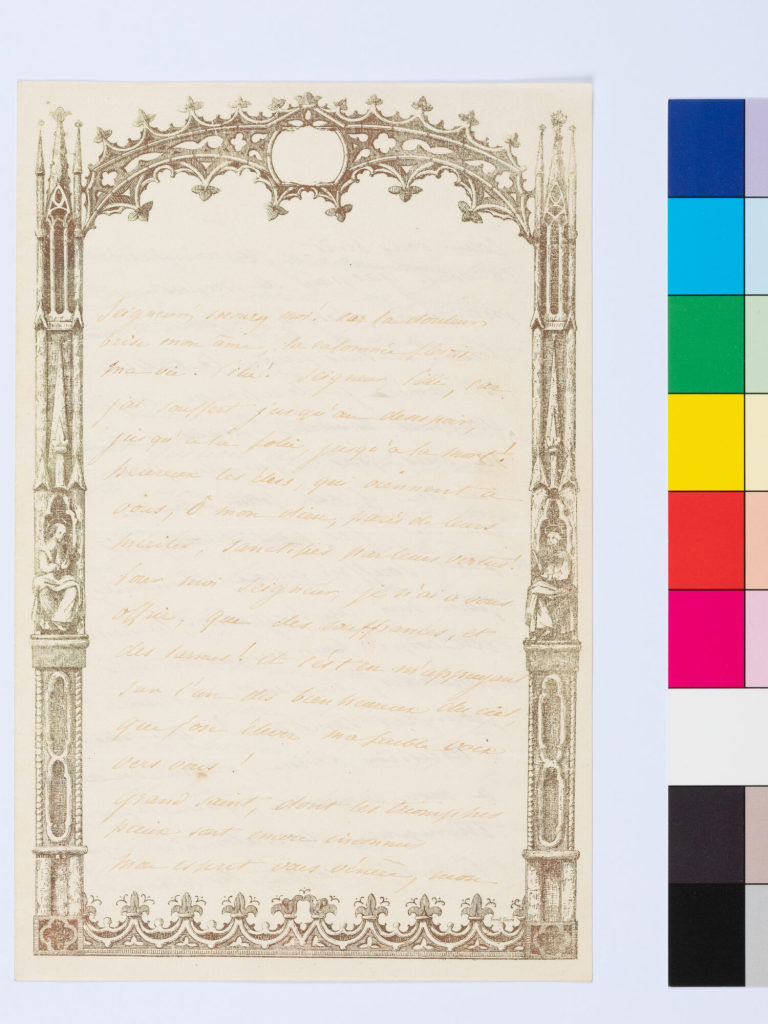 Seigneur, secourez moi! car la douleur
brise mon âme, la calomnie flétrit
ma vie. Pitié! Seigneur Pitié, car
j'ai souffert jusqu'au desespoir,
jusqu'a la folie jusqu'a la mort!
heureux les élus, qui viennent à
vous, Ô mon dieu, parés de leurs
mérites, sanctifiés par leurs vertus!
Pour moi Seigneur, je n'ai a vous
offrir, que des souffrances, et
des larmes! et c'est en m'appuyant
sur l'un des bienheureux du ciel
que j'ose élever ma faible voix
vers vous!
Grand Saint, dont les triomphes
pieux sont encore inconnus
mon esprit vous vénère, mon